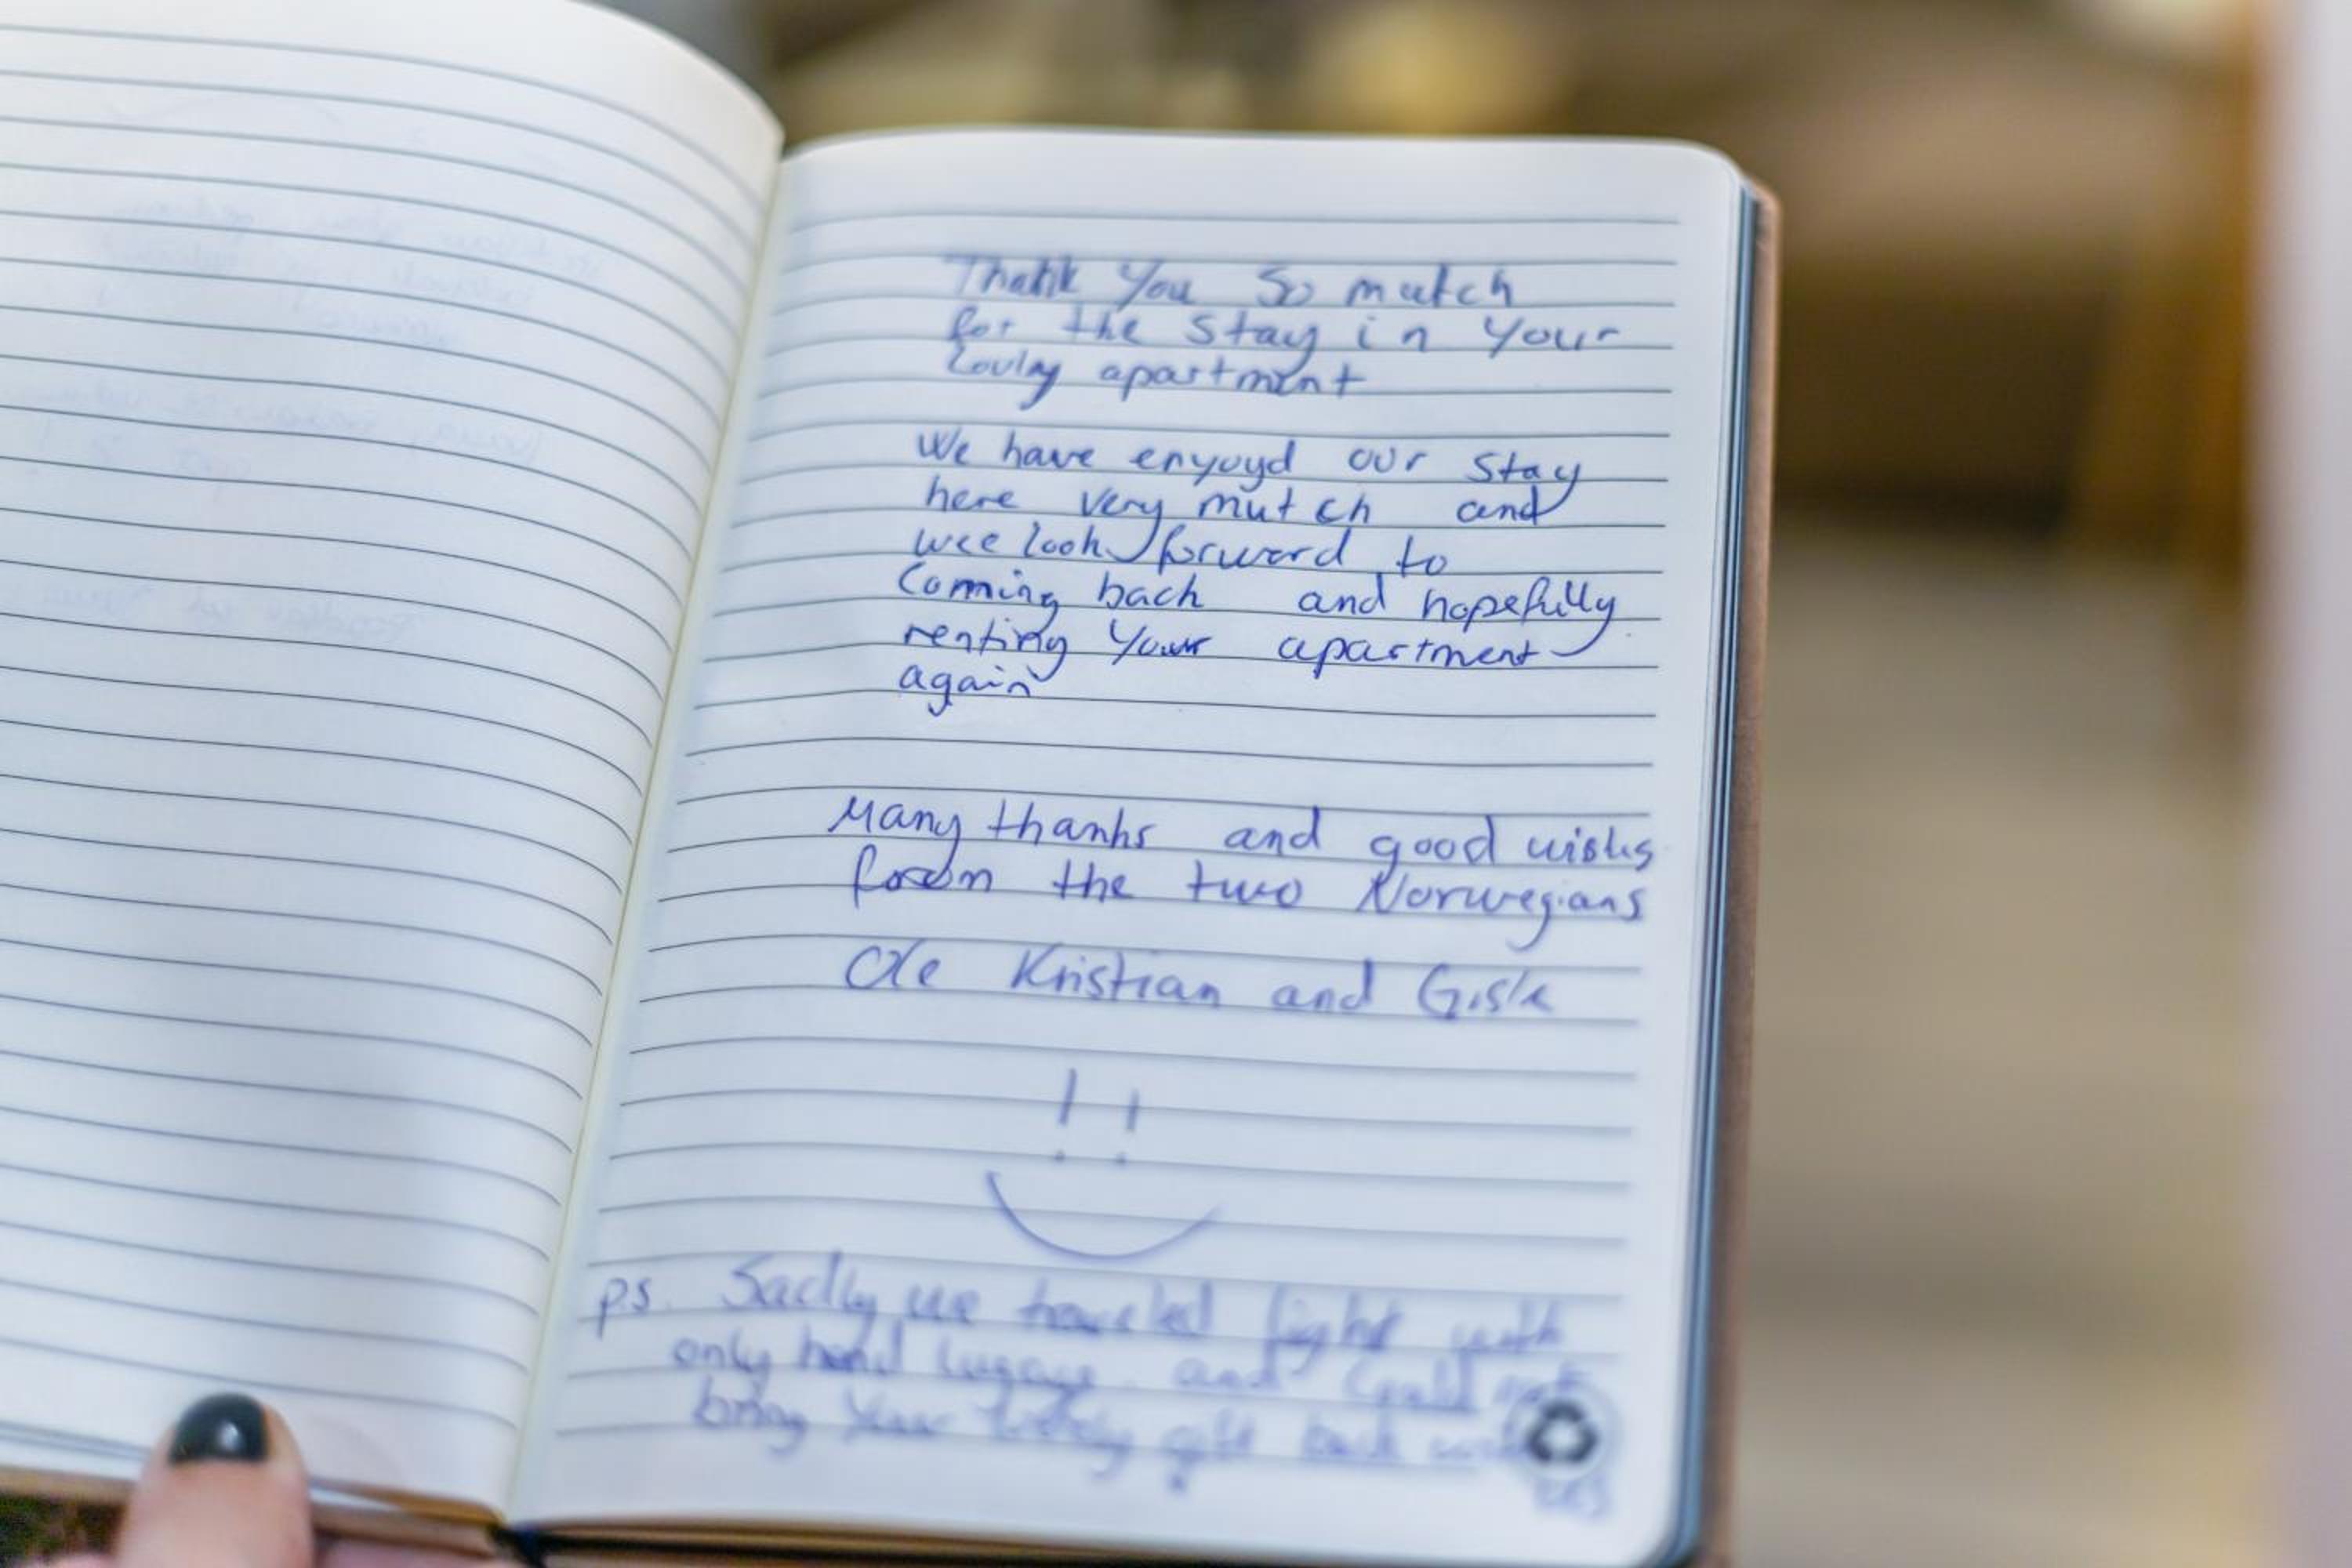 Thank you so mutch
for the stay in your
Lovly apartment
We have enyoyd our stay
here very mutch and
wee look forward to
Coming back and hopefully
renting your apartment
again
Many thanks and good wishes
from the two Norwegians
Ole Kristian and Gisle
!!
ps. Sadly we traveled light with
only hand lugage and Could not
bring your lovely gift back